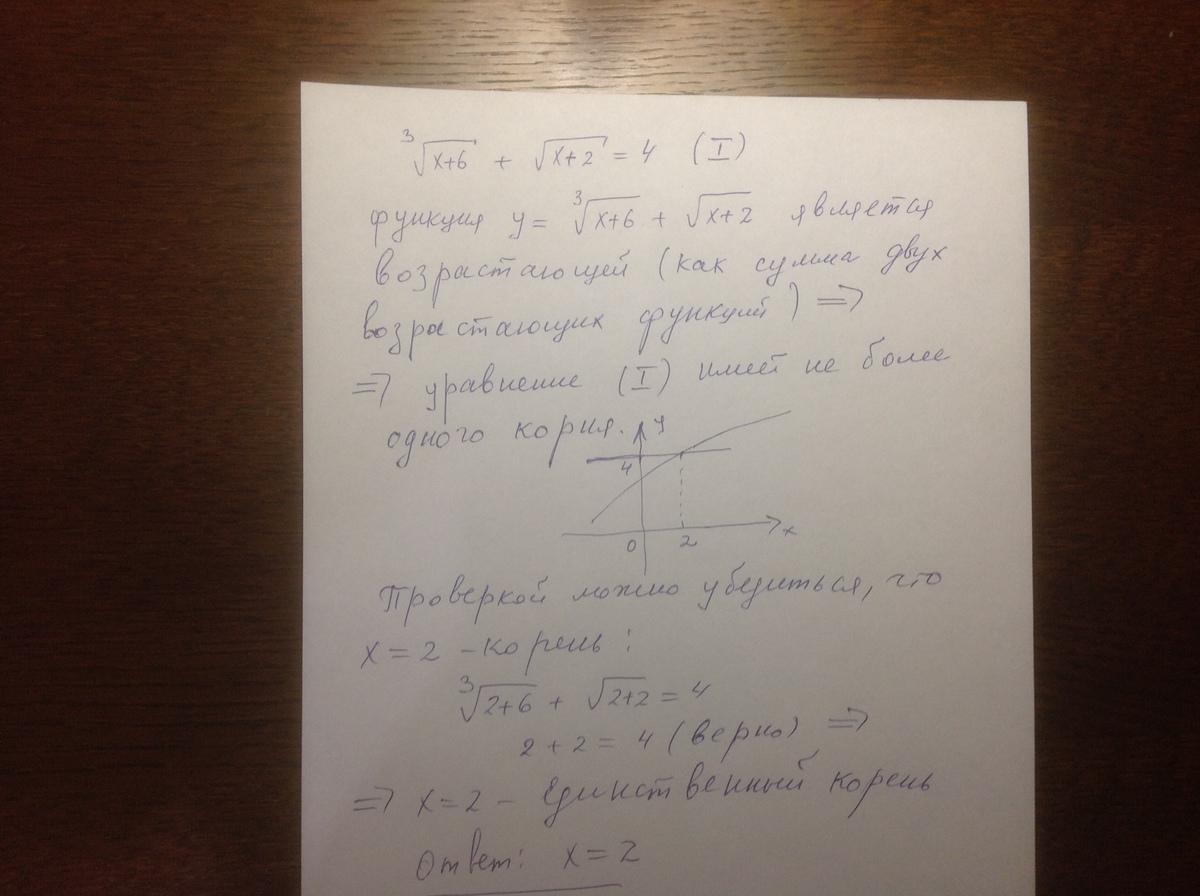 ³√x+6 + √x+2 = 4 (I)
функция y = ³√x+6 + √x+2 является
возрастающей (как сумма двух
возрастающих функций) =>
=> уравнение (I) имеет не более
одного корня.
y
4
0 2 x
Проверкой можно убедиться, что
x = 2 - корень:
³√2+6 + √2+2 = 4
2 + 2 = 4 (верно) =>
=> x = 2 - Единственный корень
Ответ: x = 2